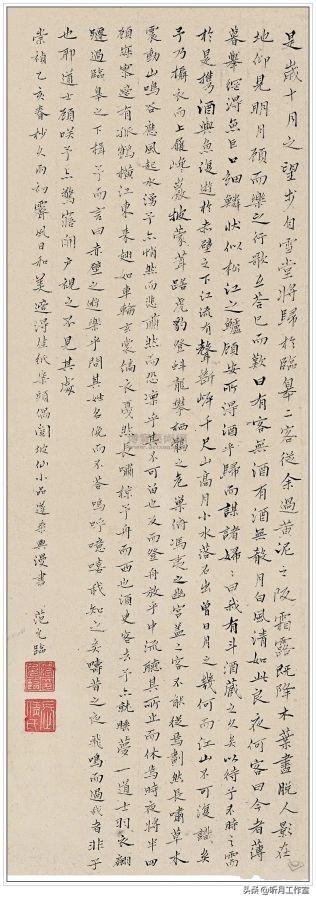 是歲十月之望步自雪堂將歸於臨皋二客從余過黃泥之阪霜露既降木葉盡脫人影在
地仰見明月顧而樂之行歌相答已而歎曰有客無酒有酒無肴月白風清如此良夜何客曰今者薄
暮舉網得魚巨口細鱗狀似松江之鱸顧安所得酒乎歸而謀諸婦〻曰我有斗酒藏之久矣以待子不時之需
於是攜酒與魚復遊於赤壁之下江流有聲斷岸千尺山高月小水落石出曾日月之幾何而江山不可復識矣
予乃攝衣而上履巉巖披蒙茸踞虎豹登虬龍攀栖鶻之危巢俯馮夷之幽宮蓋二客不能從焉劃然長嘯草木
震動山鳴谷應風起水湧予亦悄然而悲肅然而恐凜乎其不可留也反而登舟放乎中流聽其所止而休焉時夜將半四
顧寂寥適有孤鶴橫江東來翅如車輪玄裳縞衣戛然長嘯掠予舟而西也須臾客去予亦就睡夢一道士羽衣翩
躚過臨皋之下揖予而言曰赤壁之遊樂乎問其姓名俛而不答嗚呼噫嘻我知之矣疇昔之夜飛鳴而過我者非子
也耶道士顧笑予亦驚寤開戶視之不見其處
崇禎乙亥春杪久雨初霽風日和美適得佳紙案頭偶閱坡仙小品遂乘興漫書 范允臨
头条@听月工作室